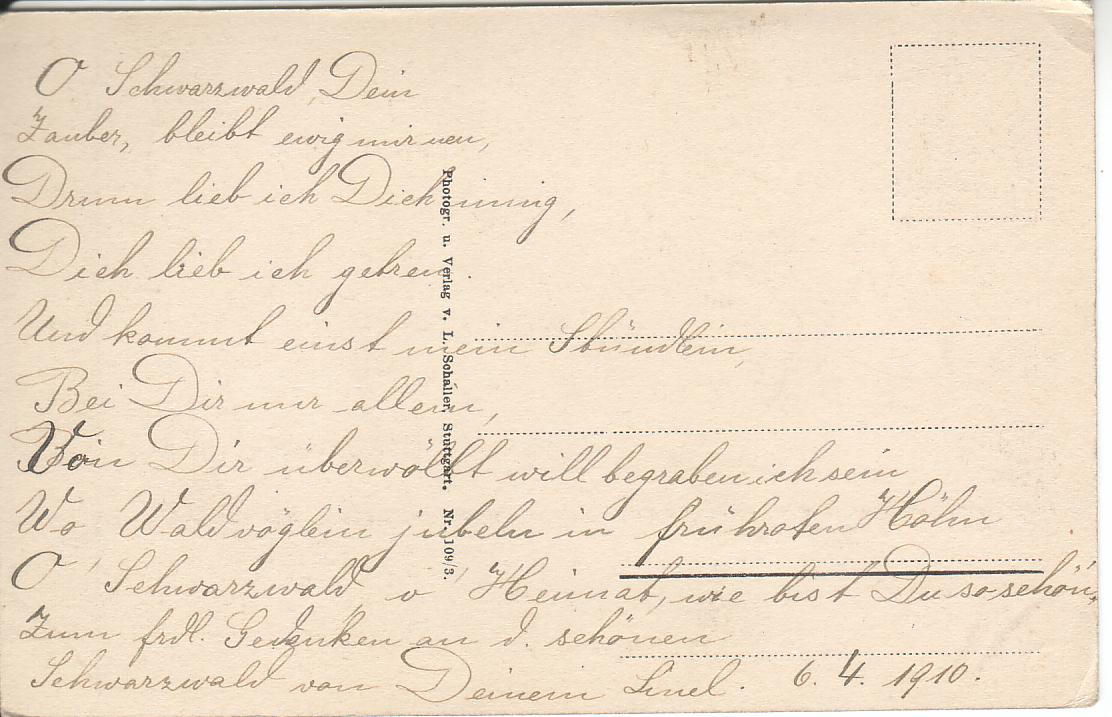 O Schwarzwald, Dein
Zauber, bleibt ewig mir neu,
Drum lieb ich Dich innig,
Dich lieb ich getreu.
Und kommt einst mein Stündlein,
Bei Dir nur allein,
Von Dir überwölbt will begraben ich sein
Wo Waldvöglein jubeln in frühroten Höhn
O, Schwarzwald, o, Heimat, wie bist Du so schön,
Zum frdl. Gedenken an d. schönen
Schwarzwald von Deinem 6. 4. 1910.
Photogr. u. Verlag v. L. Schaller, Stuttgart. Nr. 109/3.